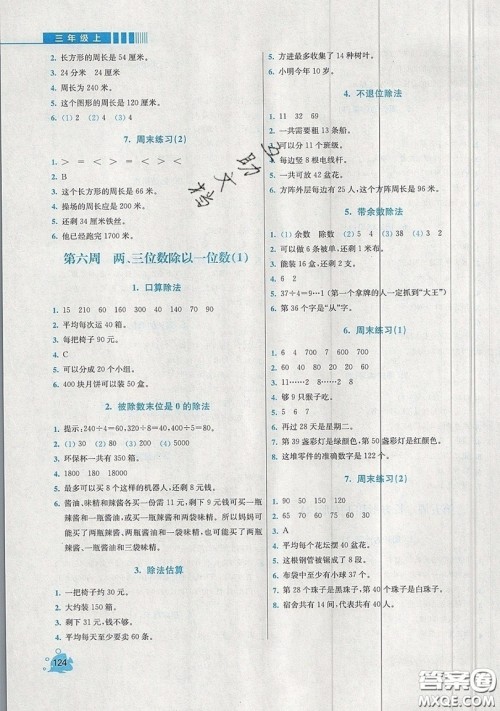 三年级上
2. 长方形的周长是 54 厘米。
3. 24 分米　24 厘米
4. 周长是 240 米。
5. 这个图形的周长是 120 厘米。
6. (1) 2　(2) 4　(3) 4
7. 周末练习(2)
1. ＞　＝　＜　＞　＝　＜　＞　＝　＜
2. B
3. 这个长方形的周长是 66 米。
4. 操场的周长应是 200 米。
5. 还剩 34 厘米铁丝。
6. 他已经跑完 1700 米。
第六周　两、三位数除以一位数(1)
1. 口算除法
1. 15　210　60　160　90　310
2. 平均每次运 40 箱。
3. 每把椅子 90 元。
4. C
5. 可以分成 20 个小组。
6. 400 块月饼可以装 50 盒。
2. 被除数末位是 0 的除法
1. 提示：240÷4＝60，320÷8＝40，65×2＝130
2. (1) 30　(2) 80　(3) 50　(4) 41
3. 环保杯一共有 350 箱。
4. 1800　180　18
5. 最多可以买 8 个这样的机器人，还剩 8 元钱。
6. 酱油、味精和辣酱各买一份需 11 元，剩下 9 元钱可买一瓶辣酱和一瓶酱油或一瓶辣酱和一袋味精。所以妈妈可能买了两瓶辣酱、两瓶酱油和一袋味精，也可能买了两瓶辣酱、一瓶酱油和两袋味精。
3. 除法估算
1. 一把椅子约 30 元。
2. 大约装 150 箱。
3. 剩下 31 元，钱不够。
4. 平均每天至少要卖 60 套。
124
5. 方进最多收集了 14 种树叶。
6. 小明今年 10 岁。
4. 不退位除法
1. 11　32　69
2. 一共需要租 13 条船。
3. 可以分 11 个班级。
4. 每边竖 8 根电线杆。
5. 一共可放 42 盆花。
6. 方阵外层每边有 25 人，这个方阵的周长是 96 米。
5. 带余数除法
1. (1) 余数　除数　(2) 2　(3) 4　(4) 3
2. 可以做 6 条连衣裙，还剩 1 米。
3. 能装 16 盒，还剩 2 个。
4. B
5. 37÷4＝9……1(第一个拿牌的人一定抓到“大王”)
6. 第 36 个字是“从”。
6. 周末练习(1)
1. 6　4　700　700　60　390
2. 3　7　9　4　8　2
3. 11……2　8……6　17……2
4. 够 9 只猴子吃。
5. B
6. 再过 28 天是星期二。
7. 第 39 盏彩灯是绿颜色，第 54 盏彩灯是红颜色。
8. 这堆零件的准确数字是 122 个。
7. 周末练习(2)
1. 90　50　150　120
2. 65　70　50　130
3. A
4. 平均每个花坛摆 40 盆花。
5. 这根钢管被锯成了 8 段。
6. 布袋中至少有小球 37 个。
7. 第 28 个珠子是黑珠子，第 40 个珠子是白珠子。
8. 宿舍共有 14 间，代表共有 40 人。